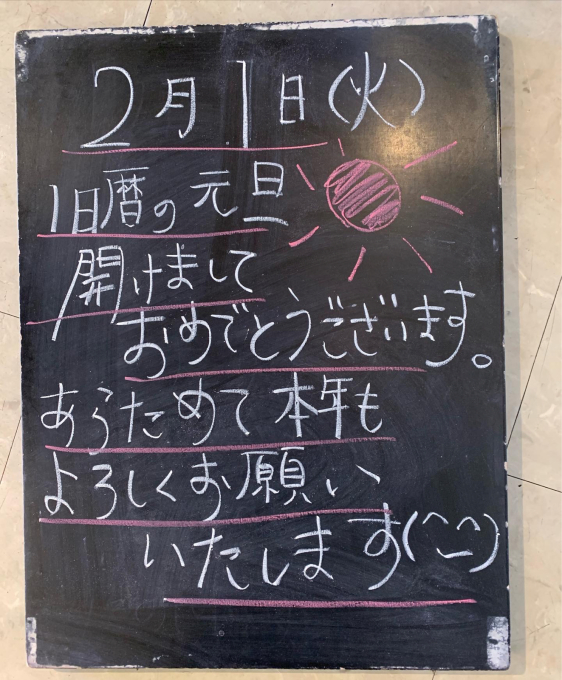 2月1日(火)
旧暦の元旦
開けまして
おめでとうございます。
あらためて本年も
よろしくお願い
いたします(^_^)